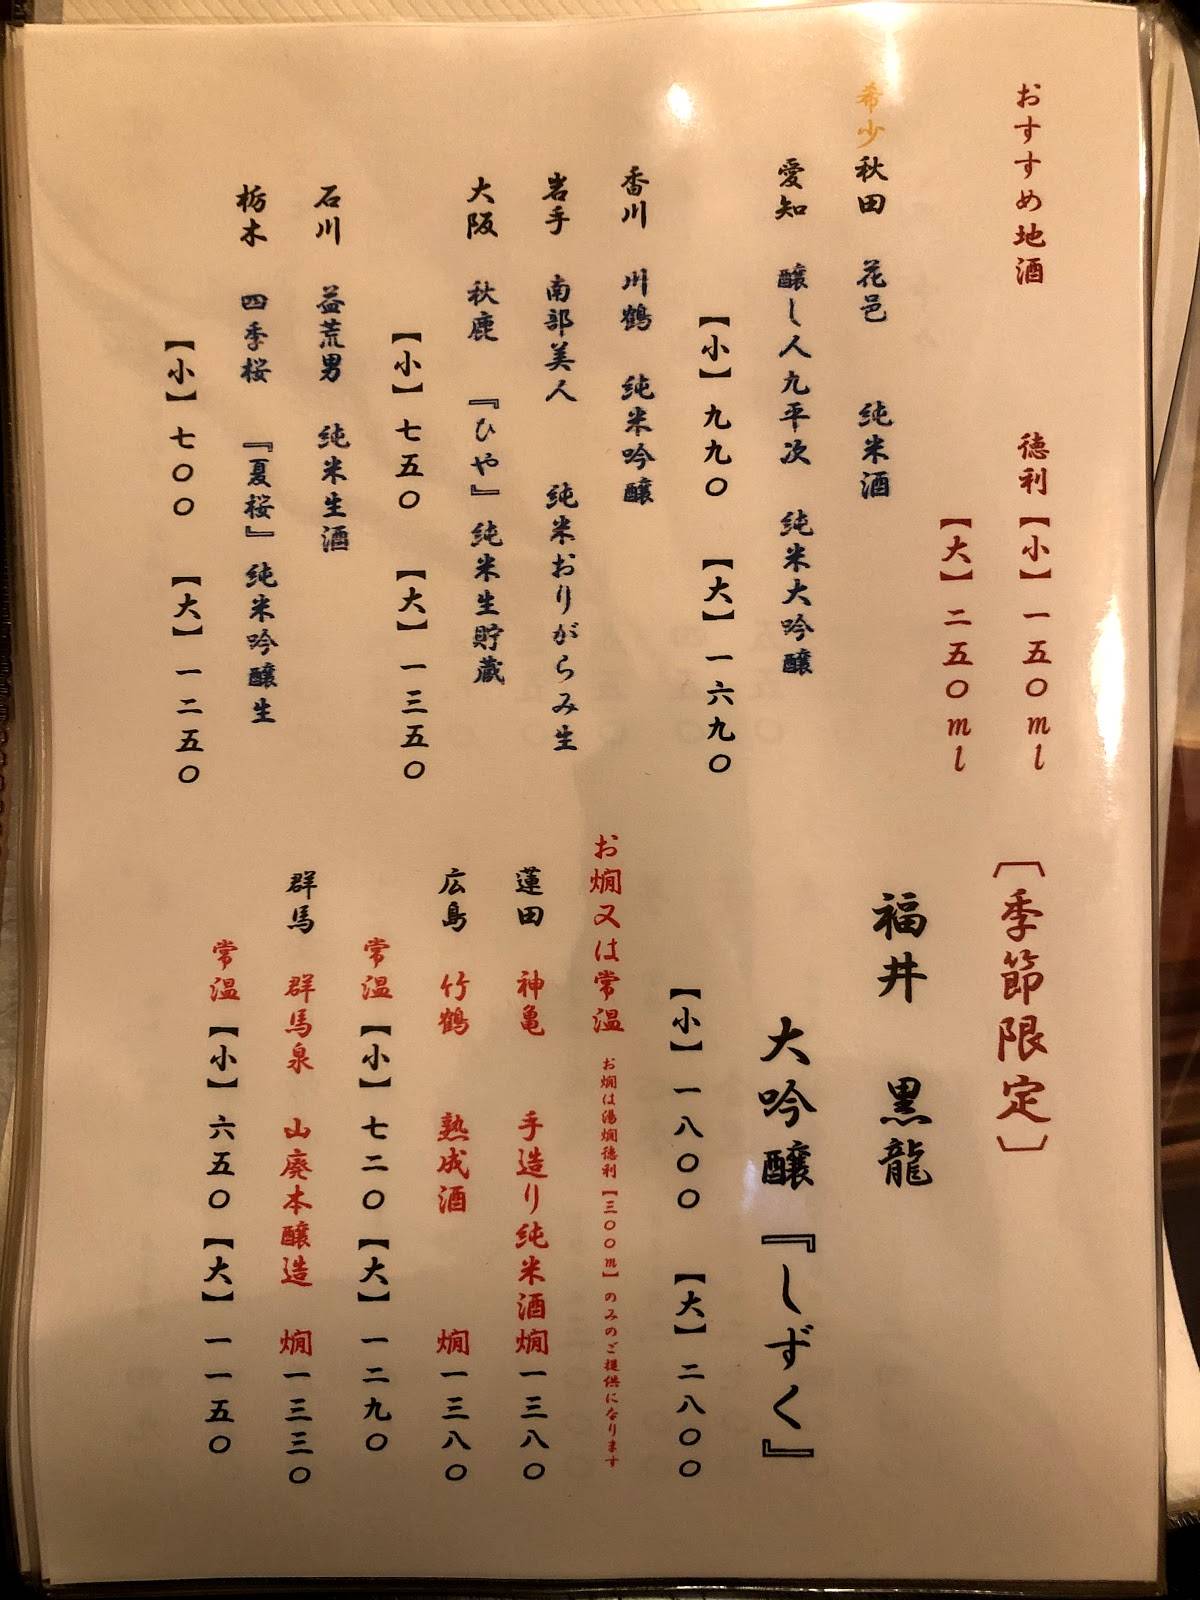 おすすめ地酒　徳利【小】一五〇ml
【大】二五〇ml
希少 秋田　花邑　純米酒
愛知　醸し人九平次　純米大吟醸
【小】九九〇　【大】一六九〇
香川　川鶴　純米吟醸
岩手　南部美人　純米おりがらみ生
大阪　秋鹿　『ひや』純米生貯蔵
【小】七五〇　【大】一三五〇
石川　益荒男　純米生酒
栃木　四季桜　『夏桜』純米吟醸生
【小】七〇〇　【大】一二五〇
〔季節限定〕
福井　黒龍
大吟醸『しずく』
【小】一八〇〇　【大】二八〇〇
お燗又は常温　お燗は湯燗徳利【三〇〇m】のみのご提供になります
蓮田　神亀　手造り純米酒燗一三八〇
広島　竹鶴　熟成酒　燗一三八〇
常温【小】七二〇【大】一二九〇
群馬　群馬泉　山廃本醸造　燗一三三〇
常温【小】六五〇【大】一一五〇